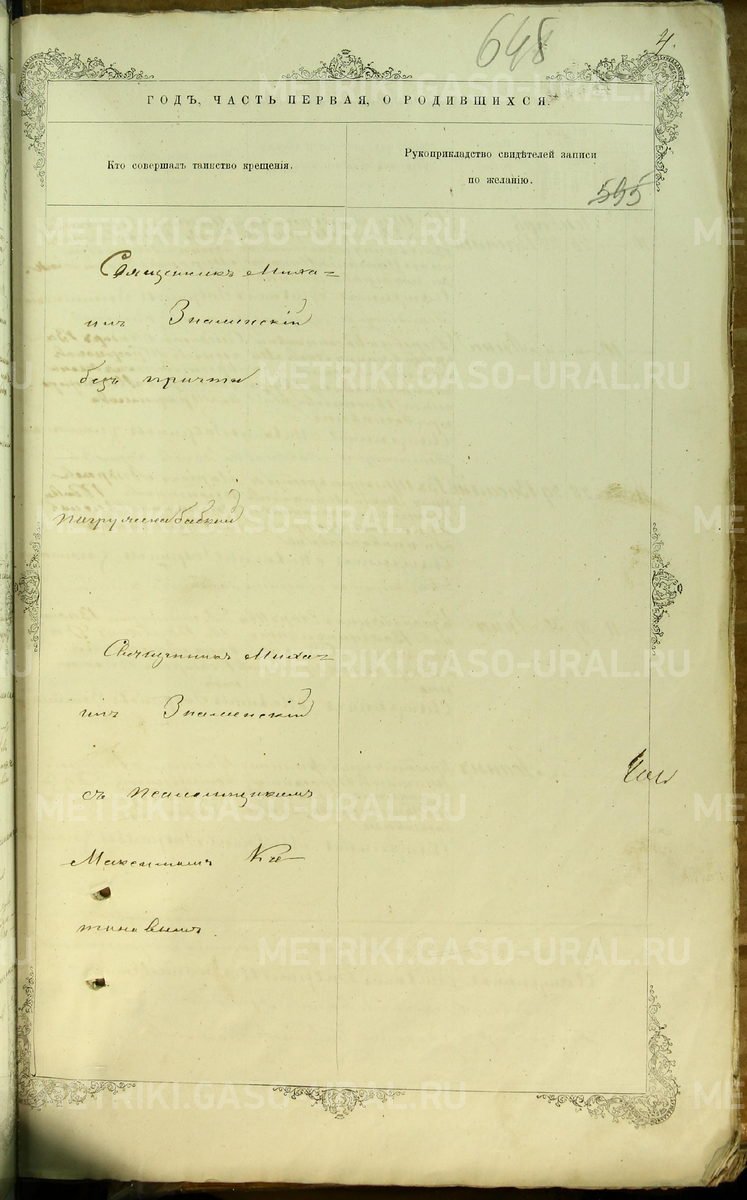 648
4.
ГОДЪ, ЧАСТЬ ПЕРВАЯ, О РОДИВШИХСЯ.
Кто совершалъ таинство крещенія.
Рукоприкладство свидѣтелей записи
по желанію.
595
Священникъ Миха=
илъ Знаменскій
безъ причта.
Священникъ Миха=
илъ Знаменскій
съ псаломщикомъ
Максимомъ
METRIKI.GASO-URAL.RU